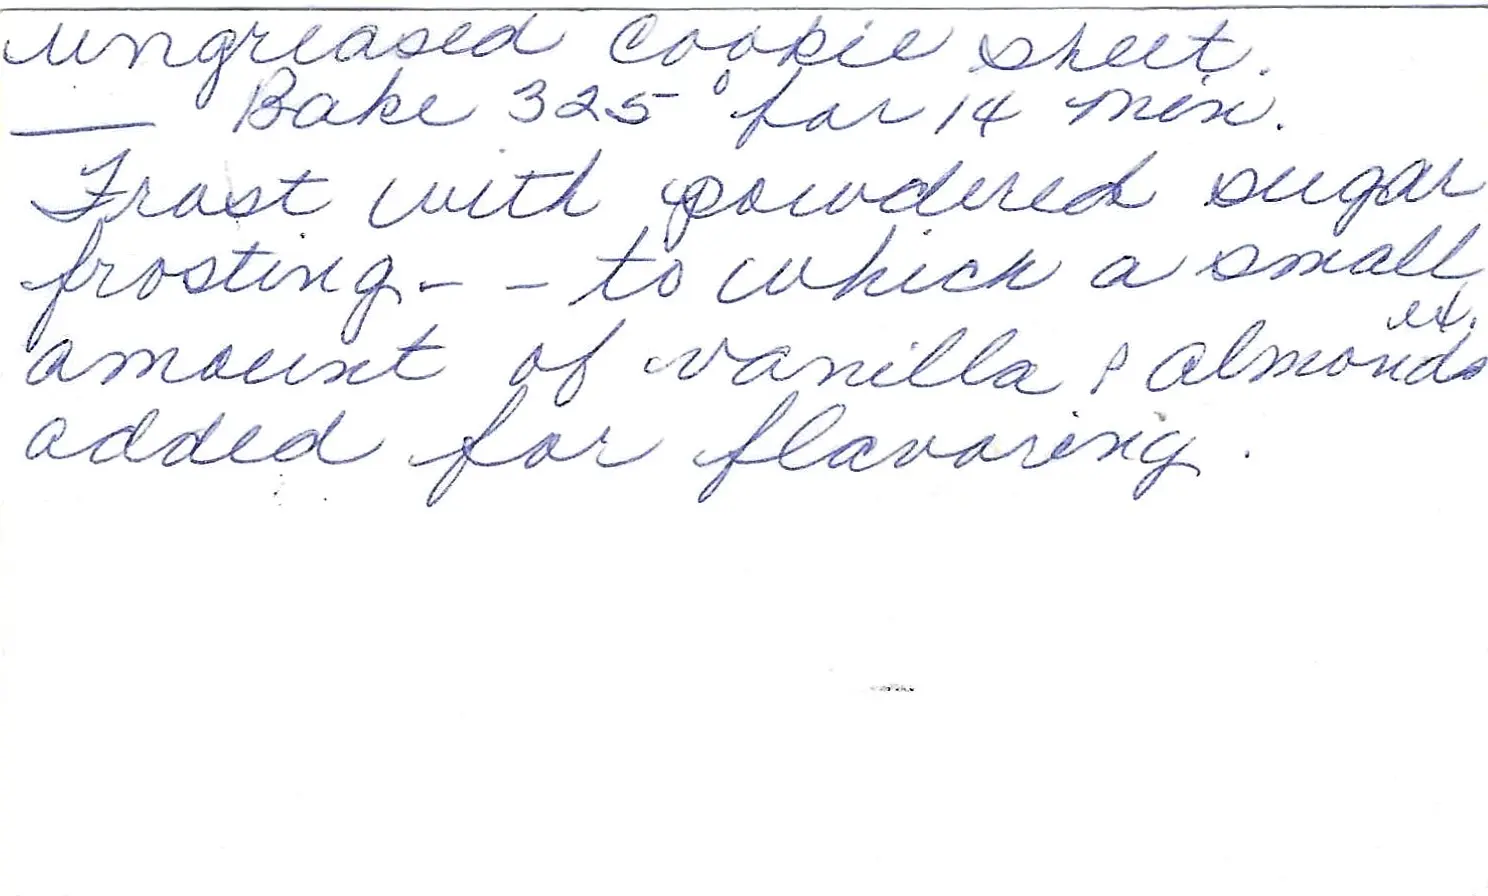 ungreased cookie sheet.
— Bake 325° for 14 min.
Frost with powdered sugar
frosting - - to which a small
ext.
amount of vanilla & almond
added for flavoring.